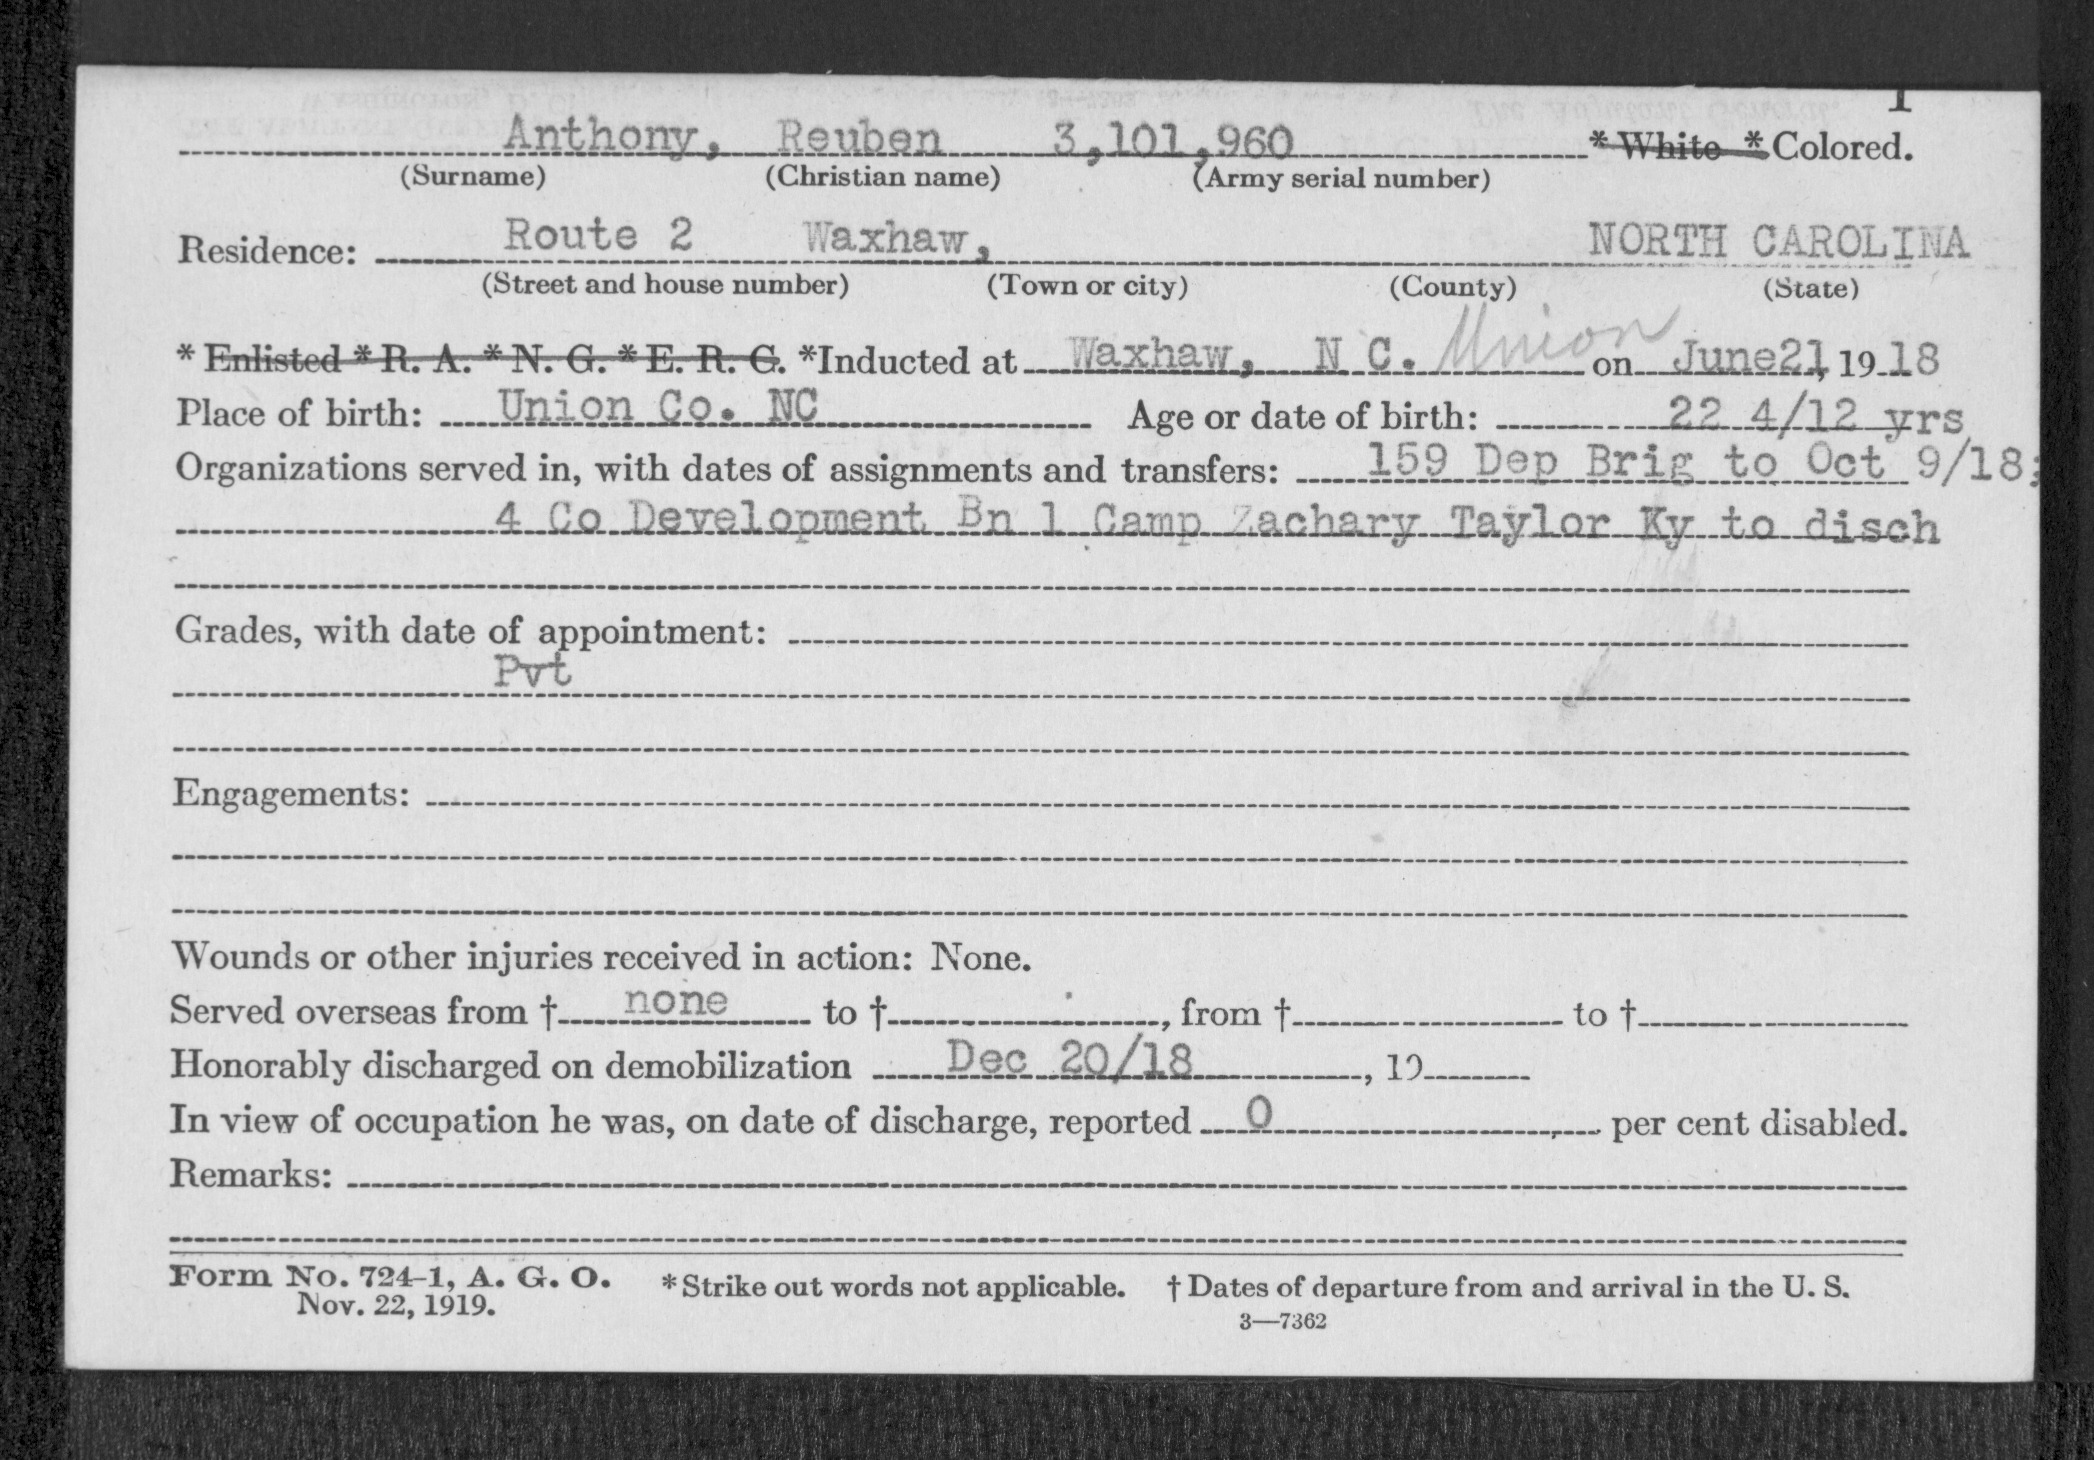 1
Anthony, Reuben 3,101,960 * White * Colored.
(Surname) (Christian name) (Army serial number)
Residence: Route 2 Waxhaw, NORTH CAROLINA
(Street and house number) (Town or city) (County) (State)
* Enlisted * R. A. * N. G. * E. R. C. *Inducted at Waxhaw, N C. Union on June21, 19 18
Place of birth: Union Co. NC Age or date of birth: 22 4/12 yrs
Organizations served in, with dates of assignments and transfers: 159 Dep Brig to Oct 9/18;
4 Co Development Bn 1 Camp Zachary Taylor Ky to disch
Grades, with date of appointment:
Pvt
Engagements:
Wounds or other injuries received in action: None.
Served overseas from † none to † , from † to †
Honorably discharged on demobilization Dec 20/18 , 19
In view of occupation he was, on date of discharge, reported 0 per cent disabled.
Remarks:
Form No. 724-1, A. G. O. * Strike out words not applicable. † Dates of departure from and arrival in the U. S.
Nov. 22, 1919.
3—7362